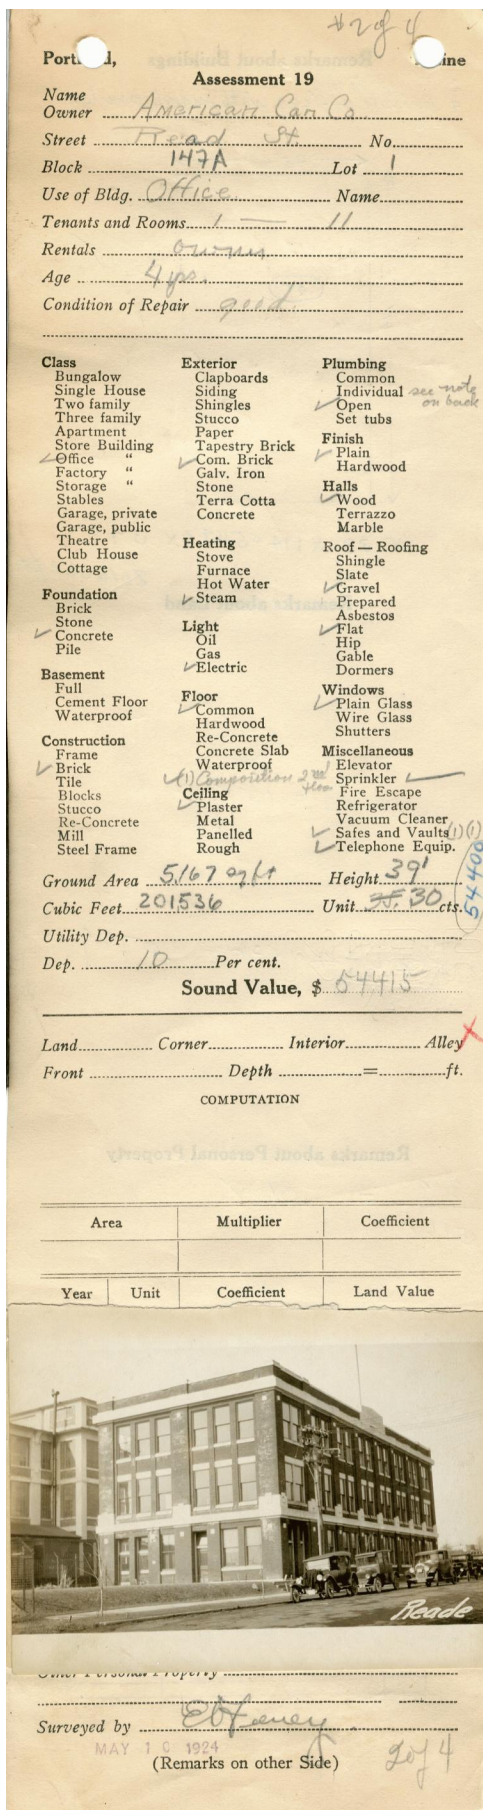 #2 of 4
Portland, Maine
Assessment 19
Name
Owner American Can Co.
Street Read St. No.
Block 147A Lot 1
Use of Bldg. Office Name
Tenants and Rooms 1 — 11
Rentals owner
Age 4 yrs.
Condition of Repair good
Class
Bungalow
Single House
Two family
Three family
Apartment
Store Building
✓ Office "
Factory "
Storage "
Stables
Garage, private
Garage, public
Theatre
Club House
Cottage
Foundation
Brick
Stone
✓ Concrete
Pile
Basement
Full
Cement Floor
Waterproof
Construction
Frame
✓ Brick
Tile
Blocks
Stucco
Re-Concrete
Mill
Steel Frame
Exterior
Clapboards
Siding
Shingles
Stucco
Paper
Tapestry Brick
✓ Com. Brick
Galv. Iron
Stone
Terra Cotta
Concrete
Heating
Stove
Furnace
Hot Water
✓ Steam
Light
Oil
Gas
✓ Electric
Floor
✓ Common
Hardwood
Re-Concrete
Concrete Slab
Waterproof
✓ (1) Composition 2nd floor
Ceiling
✓ Plaster
Metal
Panelled
Rough
Plumbing
Common
Individual see note
✓ Open on back
Set tubs
Finish
✓ Plain
Hardwood
Halls
✓ Wood
Terrazzo
Marble
Roof — Roofing
Shingle
Slate
✓ Gravel
Prepared
Asbestos
✓ Flat
Hip
Gable
Dormers
Windows
✓ Plain Glass
Wire Glass
Shutters
Miscellaneous
Elevator
Sprinkler ✓
Fire Escape
Refrigerator
Vacuum Cleaner
✓ Safes and Vaults (1) (1)
✓ Telephone Equip.
Ground Area 5,167 sq ft Height 39'
Cubic Feet 201536 Unit 30 cts.
54400
Utility Dep.
Dep. 10 Per cent.
Sound Value, $ 54415
Land Corner Interior Alley
Front Depth = ft.
COMPUTATION
Remarks about Personal Property
Area Multiplier Coefficient
Year Unit Coefficient Land Value
Reade
Other Personal Property
Surveyed by
MAY 10 1924
(Remarks on other Side)
2 of 4